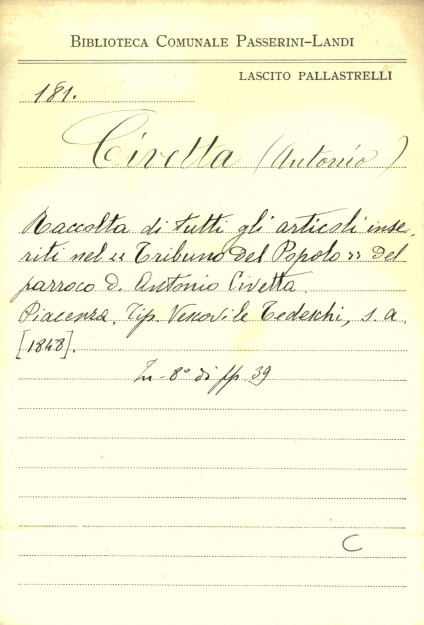 BIBLIOTECA COMUNALE PASSERINI-LANDI
LASCITO PALLASTRELLI
181.
Civetta (Antonio)
Raccolta di tutti gli articoli inse-
riti nel « Tribuno del Popolo » del
parroco D. Antonio Civetta.
Piacenza. Tip. Vescovile Tedeschi, s. a.
[1848].
In-8° di pp. 39
C